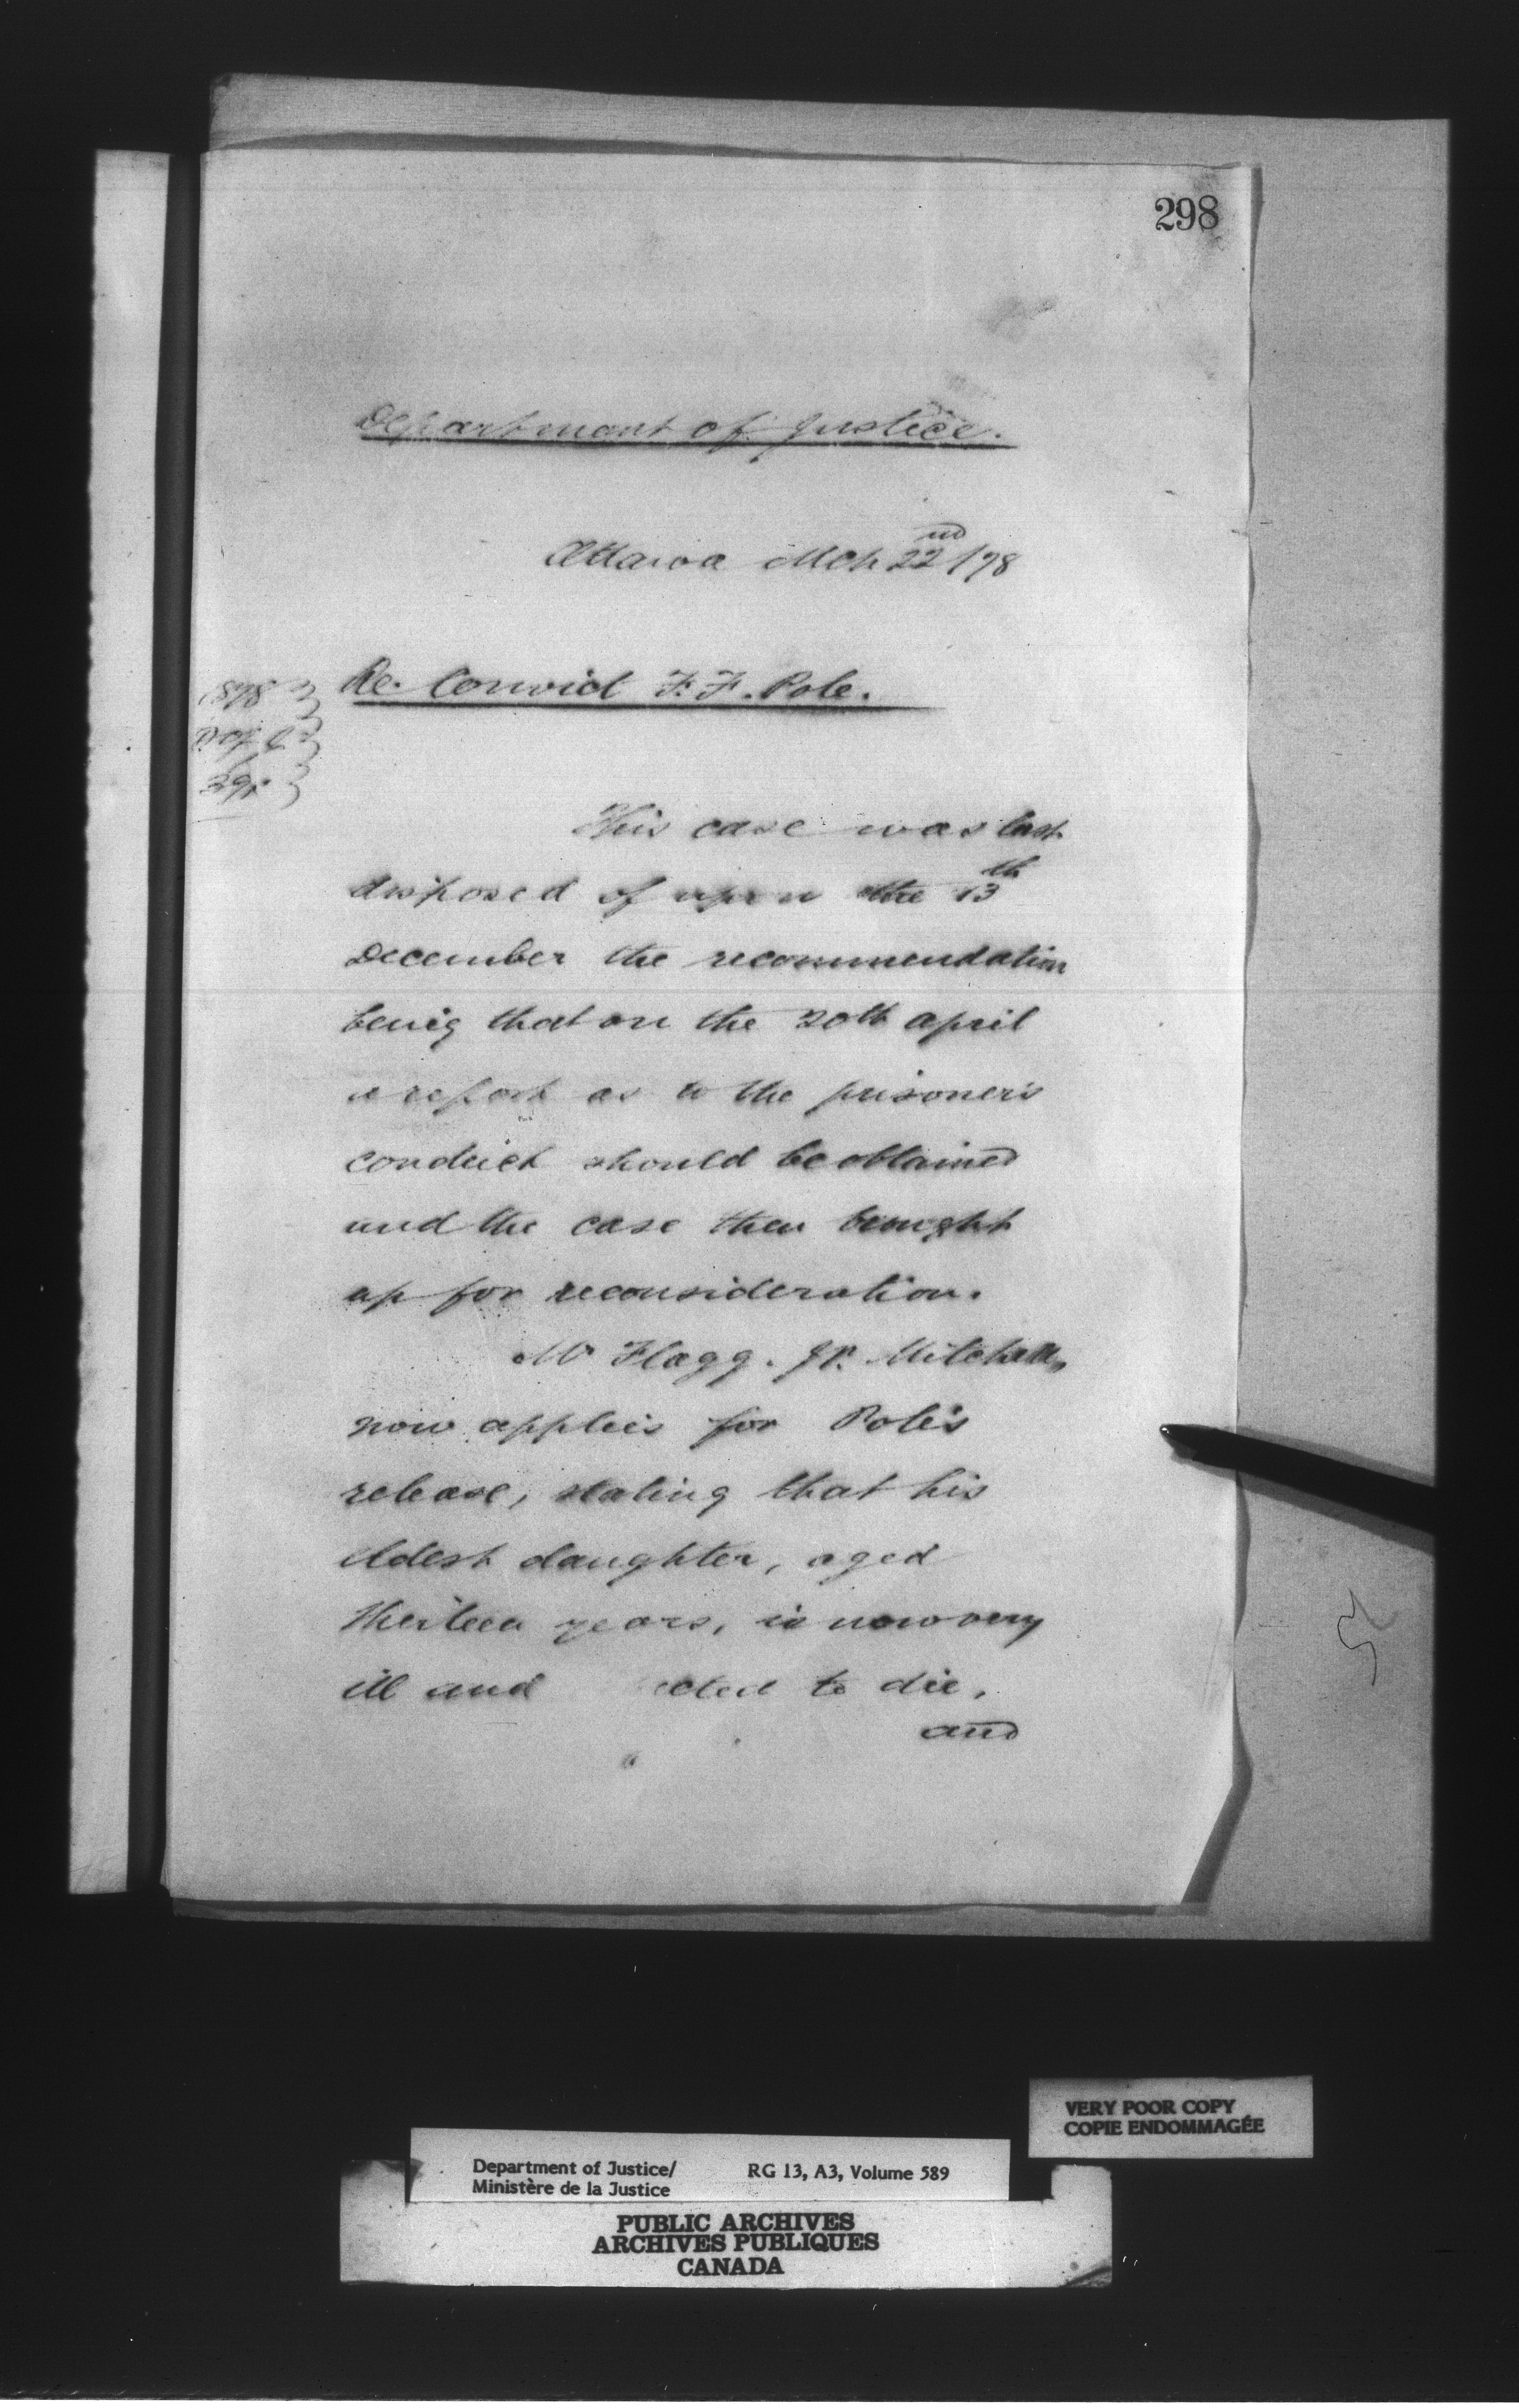 298
Department of Justice.
Ottawa Mch 22nd /78
Re. Convict F. F. Pole.
1878
This case was last
disposed of upon the 13th
December the recommendation
being that on the 20th April
a report as to the prisoner's
conduct should be obtained
and the case then brought
up for reconsideration.
Mr Flagg. J.P. Mitchell,
now applies for Pole's
release, stating that his
eldest daughter, aged
thirteen years, is now very
ill and to die,
and
VERY POOR COPY
COPIE ENDOMMAGÉE
Department of Justice/ RG 13, A3, Volume 589
Ministère de la Justice
PUBLIC ARCHIVES
ARCHIVES PUBLIQUES
CANADA